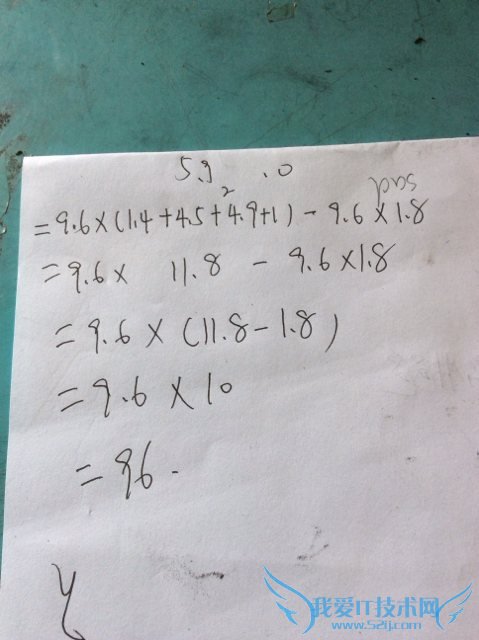 5.9 .0
2
sad
=9.6×(1.4+4.5+4.9+1)-9.6×1.8
=9.6× 11.8 - 9.6×1.8
=9.6×(11.8-1.8)
=9.6×10
=96.
我爱IT技术网
www.52ij.com